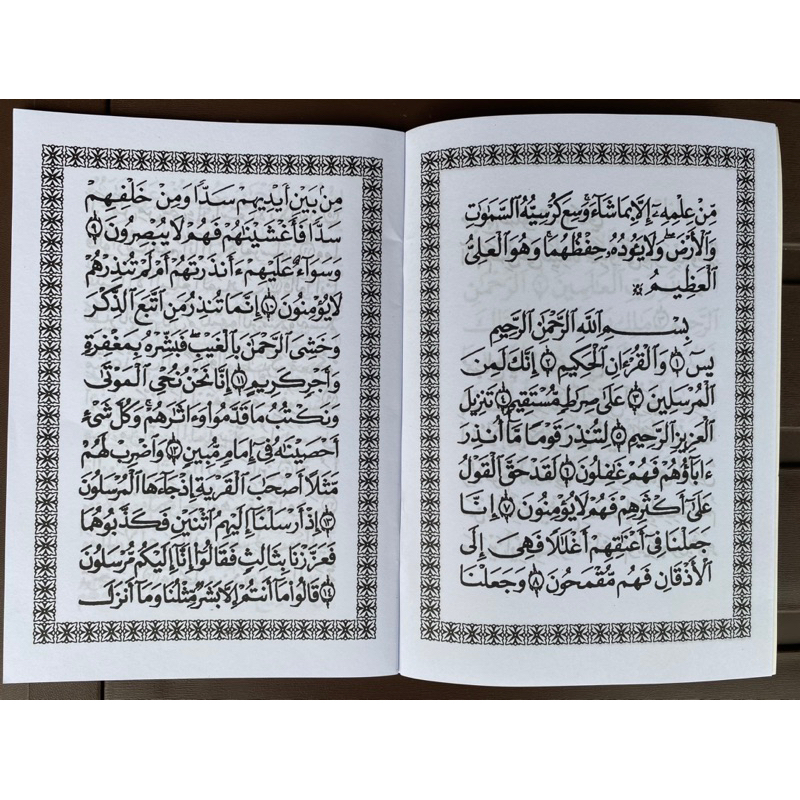 مِّنْ عِلْمِهِۦٓ إِلَّا بِمَا شَآءَ ۚ وَسِعَ كُرْسِيُّهُ ٱلسَّمَٰوَٰتِ
وَٱلْأَرْضَ ۖ وَلَا يَـُٔودُهُۥ حِفْظُهُمَا ۚ وَهُوَ ٱلْعَلِىُّ
ٱلْعَظِيمُ
بِسْمِ ٱللَّهِ ٱلرَّحْمَٰنِ ٱلرَّحِيمِ
يسٓ ﴿١﴾ وَٱلْقُرْءَانِ ٱلْحَكِيمِ ﴿٢﴾ إِنَّكَ لَمِنَ
ٱلْمُرْسَلِينَ ﴿٣﴾ عَلَىٰ صِرَٰطٍ مُّسْتَقِيمٍ ﴿٤﴾ تَنزِيلَ
ٱلْعَزِيزِ ٱلرَّحِيمِ ﴿٥﴾ لِتُنذِرَ قَوْمًا مَّآ أُنذِرَ
ءَابَآؤُهُمْ فَهُمْ غَٰفِلُونَ ﴿٦﴾ لَقَدْ حَقَّ ٱلْقَوْلُ
عَلَىٰٓ أَكْثَرِهِمْ فَهُمْ لَا يُؤْمِنُونَ ﴿٧﴾ إِنَّا
جَعَلْنَا فِىٓ أَعْنَٰقِهِمْ أَغْلَٰلًا فَهِىَ إِلَى
ٱلْأَذْقَانِ فَهُم مُّقْمَحُونَ ﴿٨﴾ وَجَعَلْنَا
مِنۢ بَيْنِ أَيْدِيهِمْ سَدًّا وَمِنْ خَلْفِهِمْ
سَدًّا فَأَغْشَيْنَٰهُمْ فَهُمْ لَا يُبْصِرُونَ ﴿٩﴾
وَسَوَآءٌ عَلَيْهِمْ ءَأَنذَرْتَهُمْ أَمْ لَمْ تُنذِرْهُمْ
لَا يُؤْمِنُونَ ﴿١٠﴾ إِنَّمَا تُنذِرُ مَنِ ٱتَّبَعَ ٱلذِّكْرَ
وَخَشِىَ ٱلرَّحْمَٰنَ بِٱلْغَيْبِ ۖ فَبَشِّرْهُ بِمَغْفِرَةٍ
وَأَجْرٍ كَرِيمٍ ﴿١١﴾ إِنَّا نَحْنُ نُحْىِ ٱلْمَوْتَىٰ
وَنَكْتُبُ مَا قَدَّمُوا۟ وَءَاثَٰرَهُمْ ۚ وَكُلَّ شَىْءٍ
أَحْصَيْنَٰهُ فِىٓ إِمَامٍ مُّبِينٍ ﴿١٢﴾ وَٱضْرِبْ لَهُم
مَّثَلًا أَصْحَٰبَ ٱلْقَرْيَةِ إِذْ جَآءَهَا ٱلْمُرْسَلُونَ
﴿١٣﴾ إِذْ أَرْسَلْنَآ إِلَيْهِمُ ٱثْنَيْنِ فَكَذَّبُوهُمَا
فَعَزَّزْنَا بِثَالِثٍ فَقَالُوٓا۟ إِنَّآ إِلَيْكُم مُّرْسَلُونَ
﴿١٤﴾ قَالُوا۟ مَآ أَنتُمْ إِلَّا بَشَرٌ مِّثْلُنَا وَمَآ أَنزَلَ